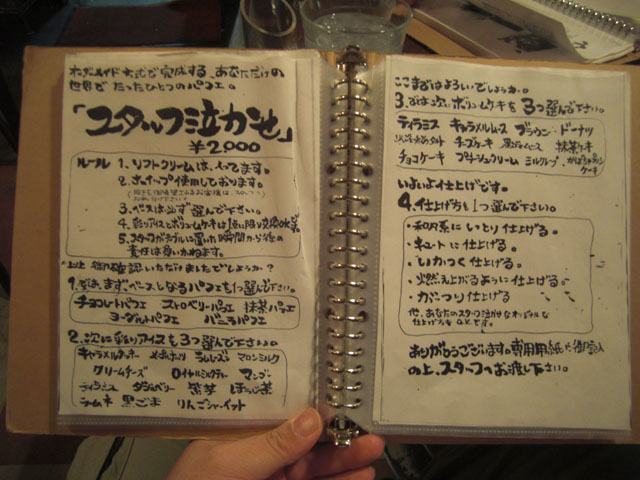 オーダーメイド方式で完成する、あなただけの
世界で たったひとつのパフェ。
「スタッフ泣かせ」
￥2000
ルール 1. ソフトクリームは、入ってます。
2. ホイップ使用しております。
3. ベースは必ず 選んで下さい。
4. 彩りアイスとボリュームケーキは1点に限り交換OK
5. スタッフがテーブルに置いた瞬間から後の
責任は負いかねます。
以上 御確認いただけましたでしょうか?
1. では、まず“ベース”となるパフェを1つ選んで下さい。
チョコレートパフェ ストロベリーパフェ 抹茶パフェ
ヨーグルトパフェ バニラパフェ
2. 次に彩りアイスを3つ選んで下さい。
キャラメルクッキー ラムレーズン マロンミルク
クリームチーズ ロイヤルミルクティー マンゴー
ティラミス ブルーベリー 紫芋 ほうじ茶
ラムネ 黒ごま りんごシャーベット
ここまではよろしいでしょうか。
3. では次にボリュームケーキを 3つ選んで下さい。
ティラミス キャラメルムース ブラウン・ドーナツ
チーズケーキ 抹茶ケーキ
チョコケーキ プチシュークリーム ミルクレープ ケーキ
いよいよ仕上げです。
4. 仕上げ方を1つ選んで下さい。
・和風系に しっとり仕上げる。
・キュートに仕上げる。
・いかつく仕上げる。
・燃え上がるように仕上げる。
・がっつり仕上げる
他、あなたのスタッフ泣かせなオリジナルな
仕上げ方もOKです。
ありがとうございます。専用用紙に御記入
の上、スタッフへお渡し下さい。